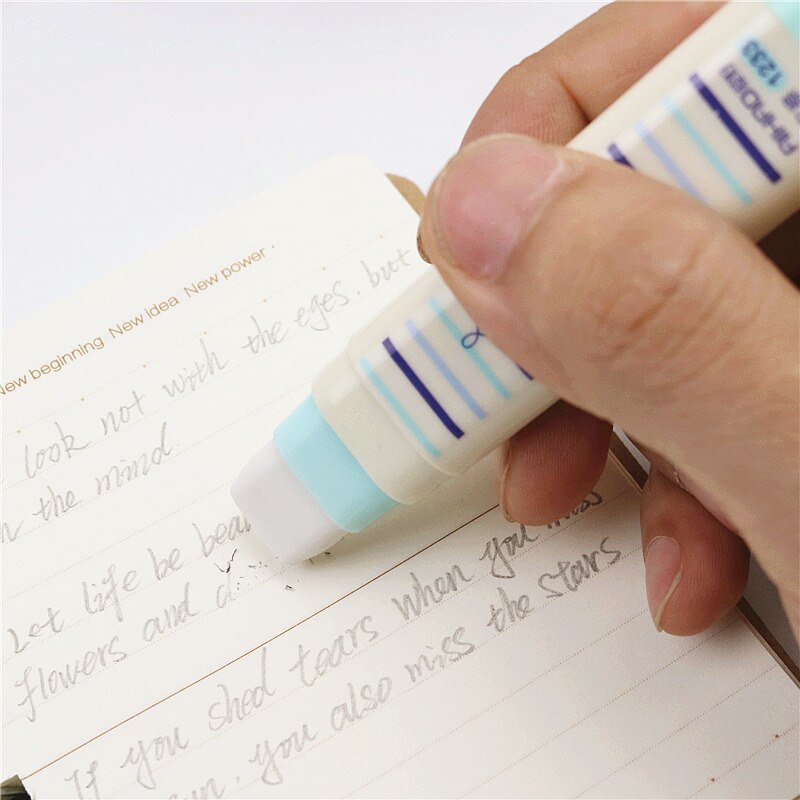 New beginning New idea New power
look not with the eyes. but
the mind
Let life be
flowers and
If you shed tears when you miss
you also miss the stars
AIHAO
1233